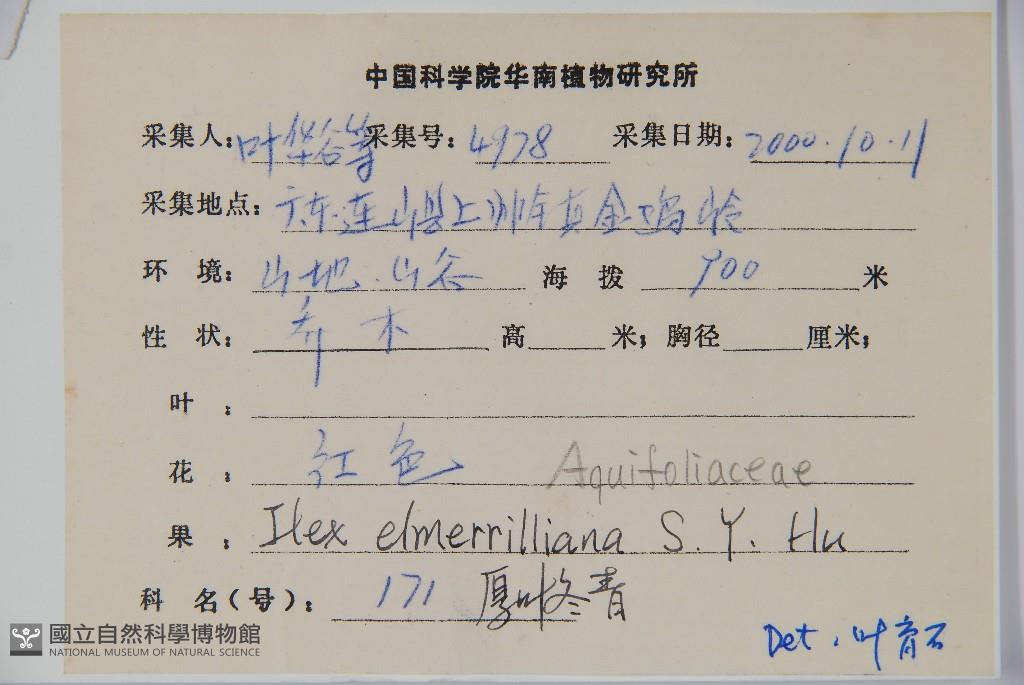 中国科学院华南植物研究所
采集人：叶华谷等 采集号：4978 采集日期：2000.10.11
采集地点：广东连山县上洲镇金鸡岭
环 境：山地.山谷 海 拨 900 米
性 状：乔木 高 米；胸径 厘米；
叶：
花：红色 Aquifoliaceae
果：Ilex elmerrilliana S. Y. Hu
科 名（号）：171 厚叶冬青
Det. 叶育石
國立自然科學博物館
NATIONAL MUSEUM OF NATURAL SCIENCE